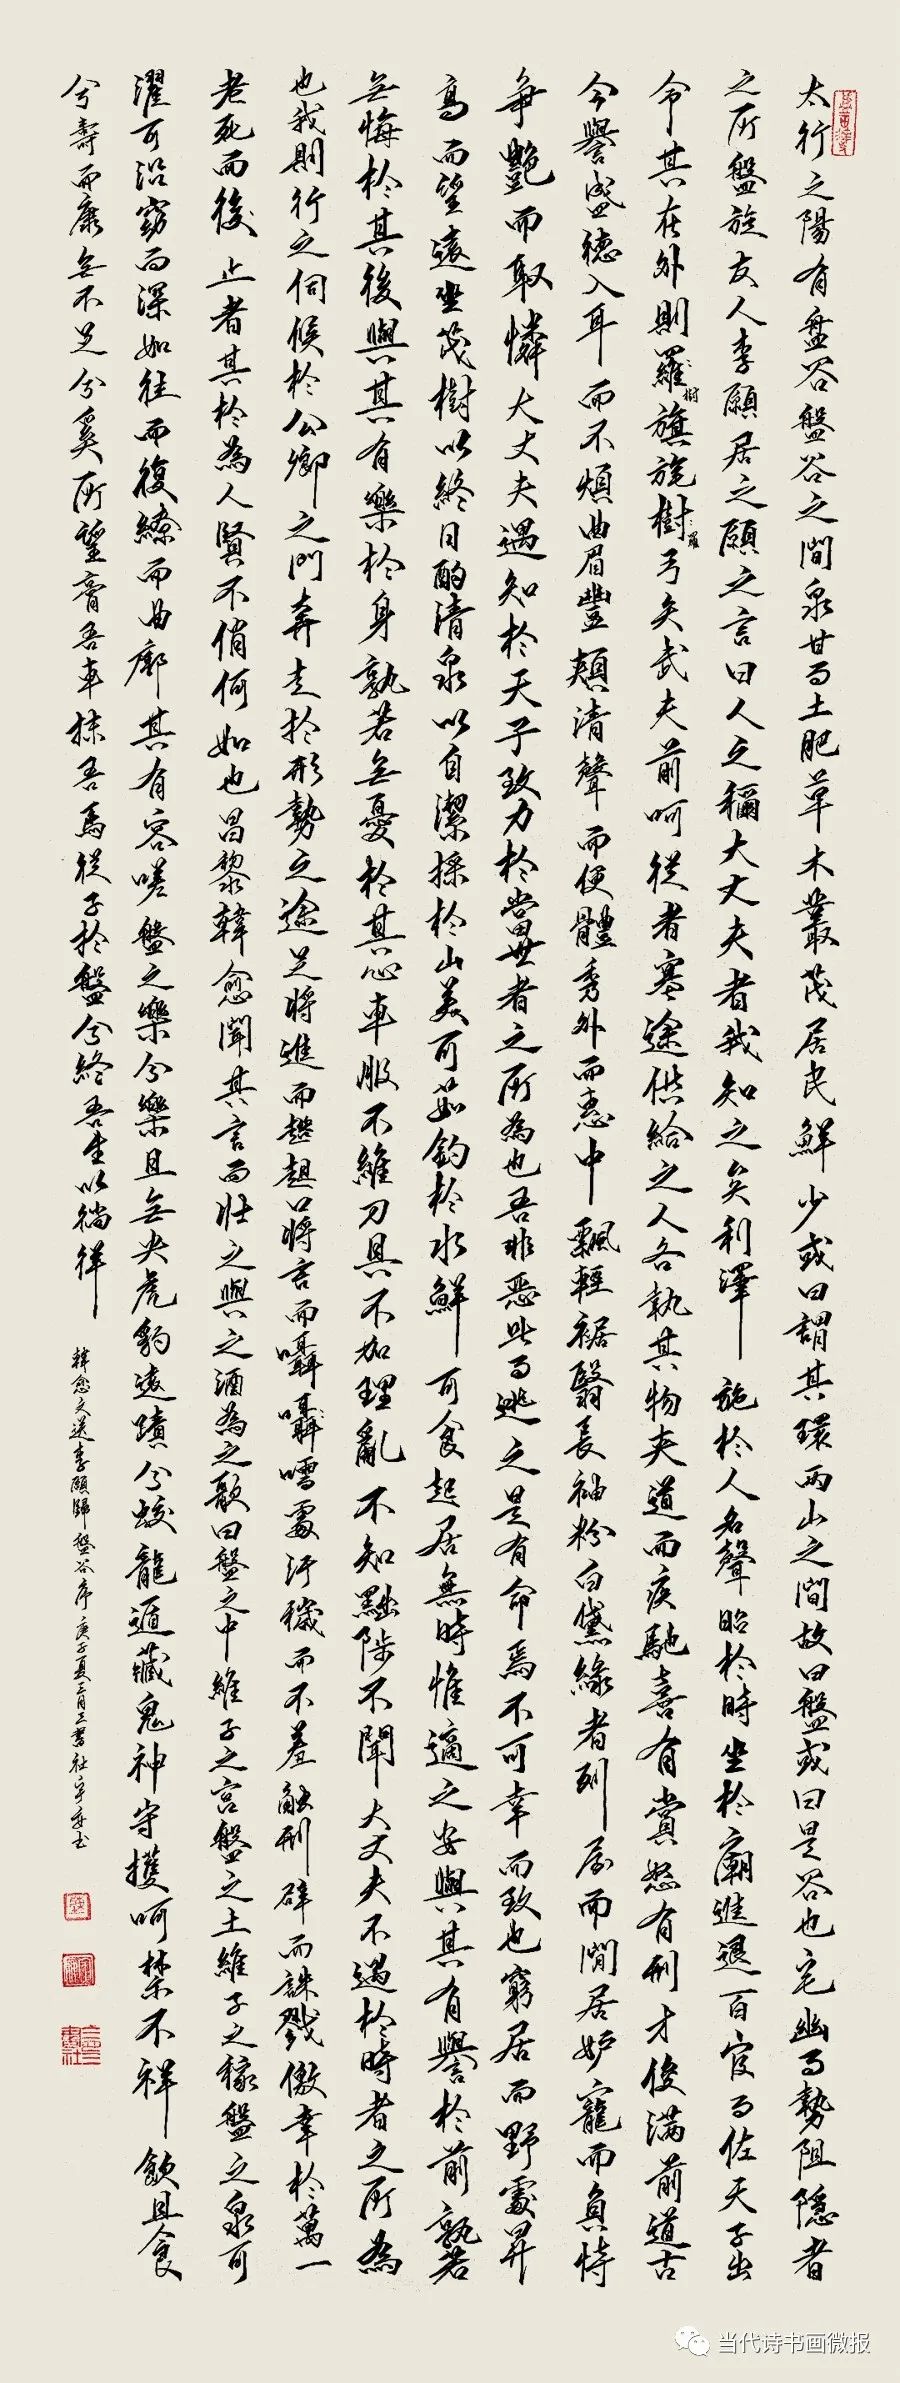 太行之陽有盘谷盤谷之間泉甘而土肥草木叢茂居民鮮少或曰謂其環兩山之間故曰盤或曰是谷也宅幽而勢阻隱者
之所盤旋友人李願居之願之言曰人之稱大丈夫者我知之矣利澤施於人名聲昭於時坐於廟進退百官而佐天子出
令其在外則羅旗旄樹弓矢武夫前呵從者塞途供給之人各執其物夾道而疾馳喜有賞怒有刑才俊满前道古
樹
羅
今譽盛德入耳而不煩曲眉豐頰清聲而便體秀外而惠中飄輕裾翳長袖粉白黛緣者列屋而閒居妒寵而負恃
爭艷而取憐大丈夫遇知於天子致力於當世者之所為也吾非惡此而逃之是有命焉不可幸而致也窮居而野處昇
高而望遠坐茂樹以終日酌清泉以自潔採於山美可茹釣於水鮮可食起居無時惟適之安與其有譽於前孰若
無悔於其後與其有樂於身孰若無憂於其心車服不維刀具不加理亂不知黜陟不聞大丈夫不遇於時者之所為
也我則行之伺候於公卿之門奔走於形勢之途足將進而趑趄口將言而囁嚅處汙穢而不羞觸刑辟而誅戮儌幸於萬一
老死而後止者其於為人賢不俏何如也昌黎韓愈聞其言而壯之與之酒為之歌曰盤之中維子之宮盤之土維子之稼盤之泉可
濯可沿窈而深如往而復繚而曲廓其有容嗟盤之樂兮樂且無央虎豹遠蹟兮蛟龍遁藏鬼神守護呵禁不祥飲且食
兮壽而康無不足兮奚所望膏吾車抹吾馬從子於盤兮終吾生以徜徉
韓愈文送李願歸盤谷序庚子夏
当代诗书画微报